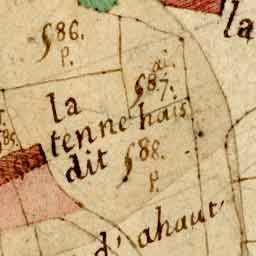 la
586.
p.
ai.
587.
la
tenne hais
dit 588.
p.
d'ahaut